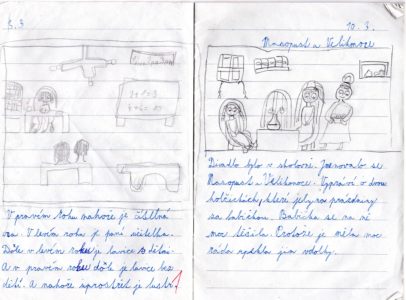 5. 3
1+1=3
4+6=
V pravém rohu nahoře je čítelná
V levém rohu je paní učitelka.
Dóle v levém rohu je lavice s dětmi.
A v pravém rohu dóle je lavice bez
dětí. A nahoře uprostřed je lustr.
10. 3.
Masopust a Velikonoce
Divadlo bylo v školovně. Jmenovalo se
Masopust a Velikonoce. Vypráví o dvou
holčičkách, které jely na prázdniny
za babičkou. Babička se na ně
moc těšila. Protože je měla moc
ráda upekla jim vdolky.